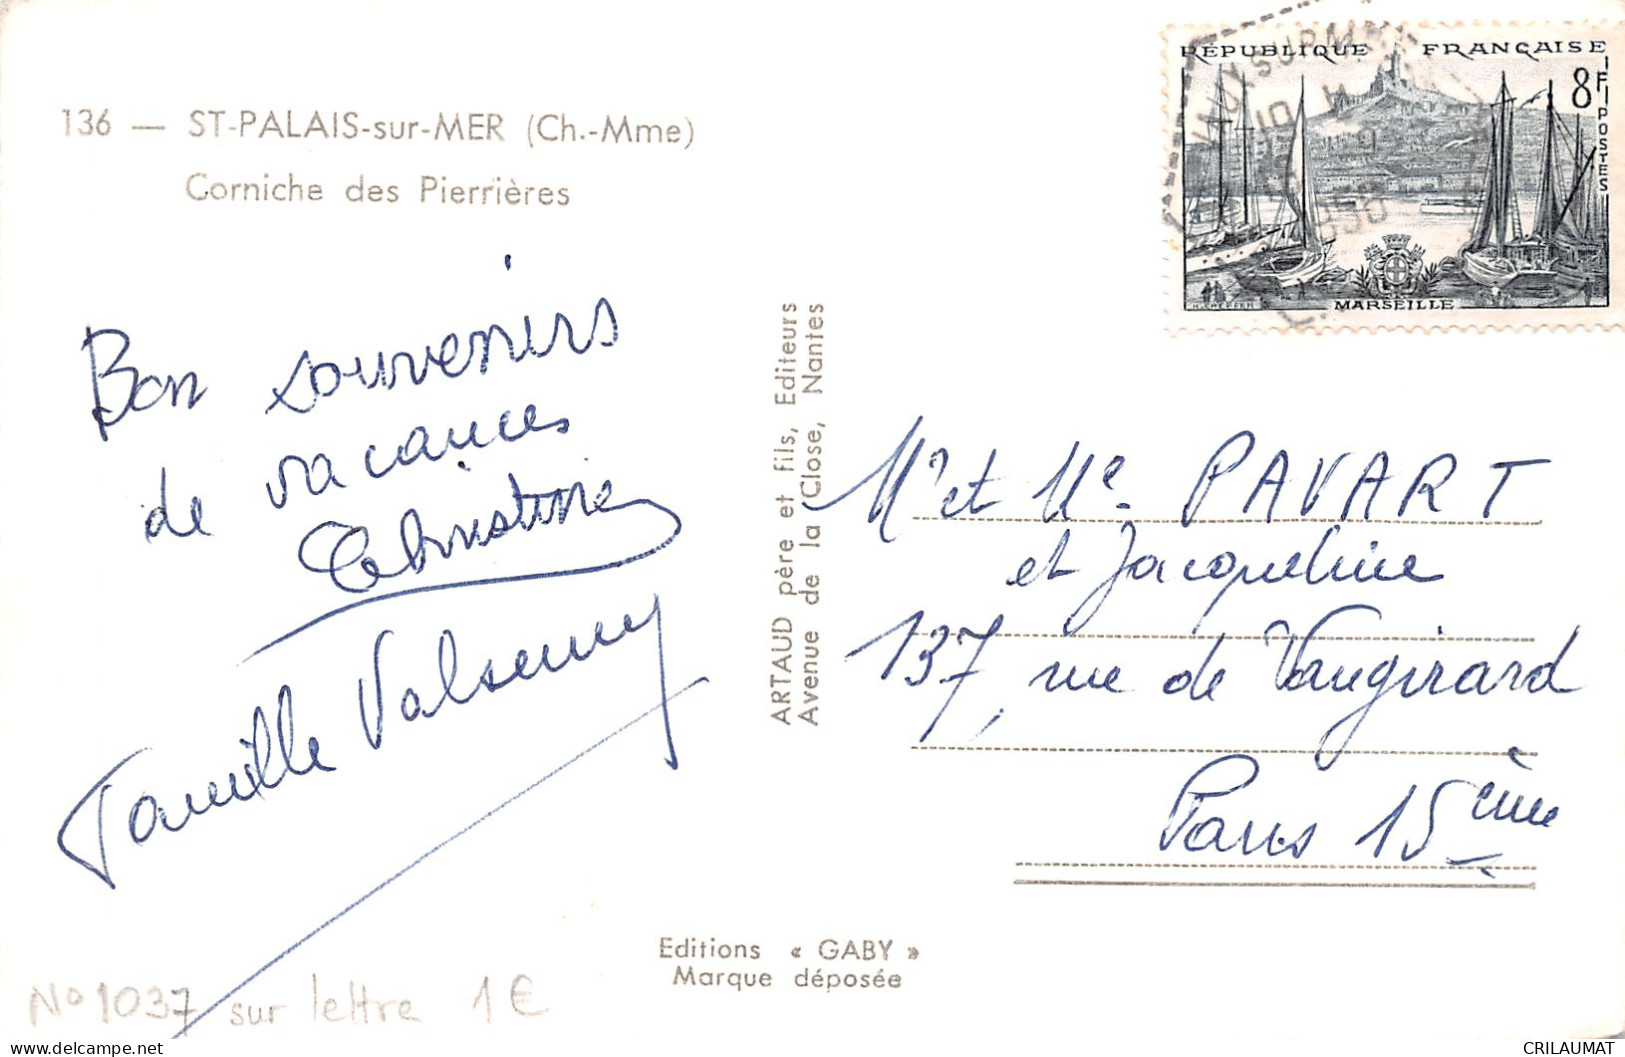 136 — ST-PALAIS-sur-MER (Ch.-Mme)
Corniche des Pierrières
Bon souveniers
de vacances
Christine
Famille Valsemey
ARTAUD père et fils, Editeurs
Avenue de la Close, Nantes
RÉPUBLIQUE FRANÇAISE
8F
POSTES
MARSEILLE
Mr et Me PAVART
et Jacqueline
137, rue de Vaugirard
Paris 15ème
Editions « GABY »
Marque déposée
No 1037 sur lettre 1€
Delcampe.net
CRILAUMAT